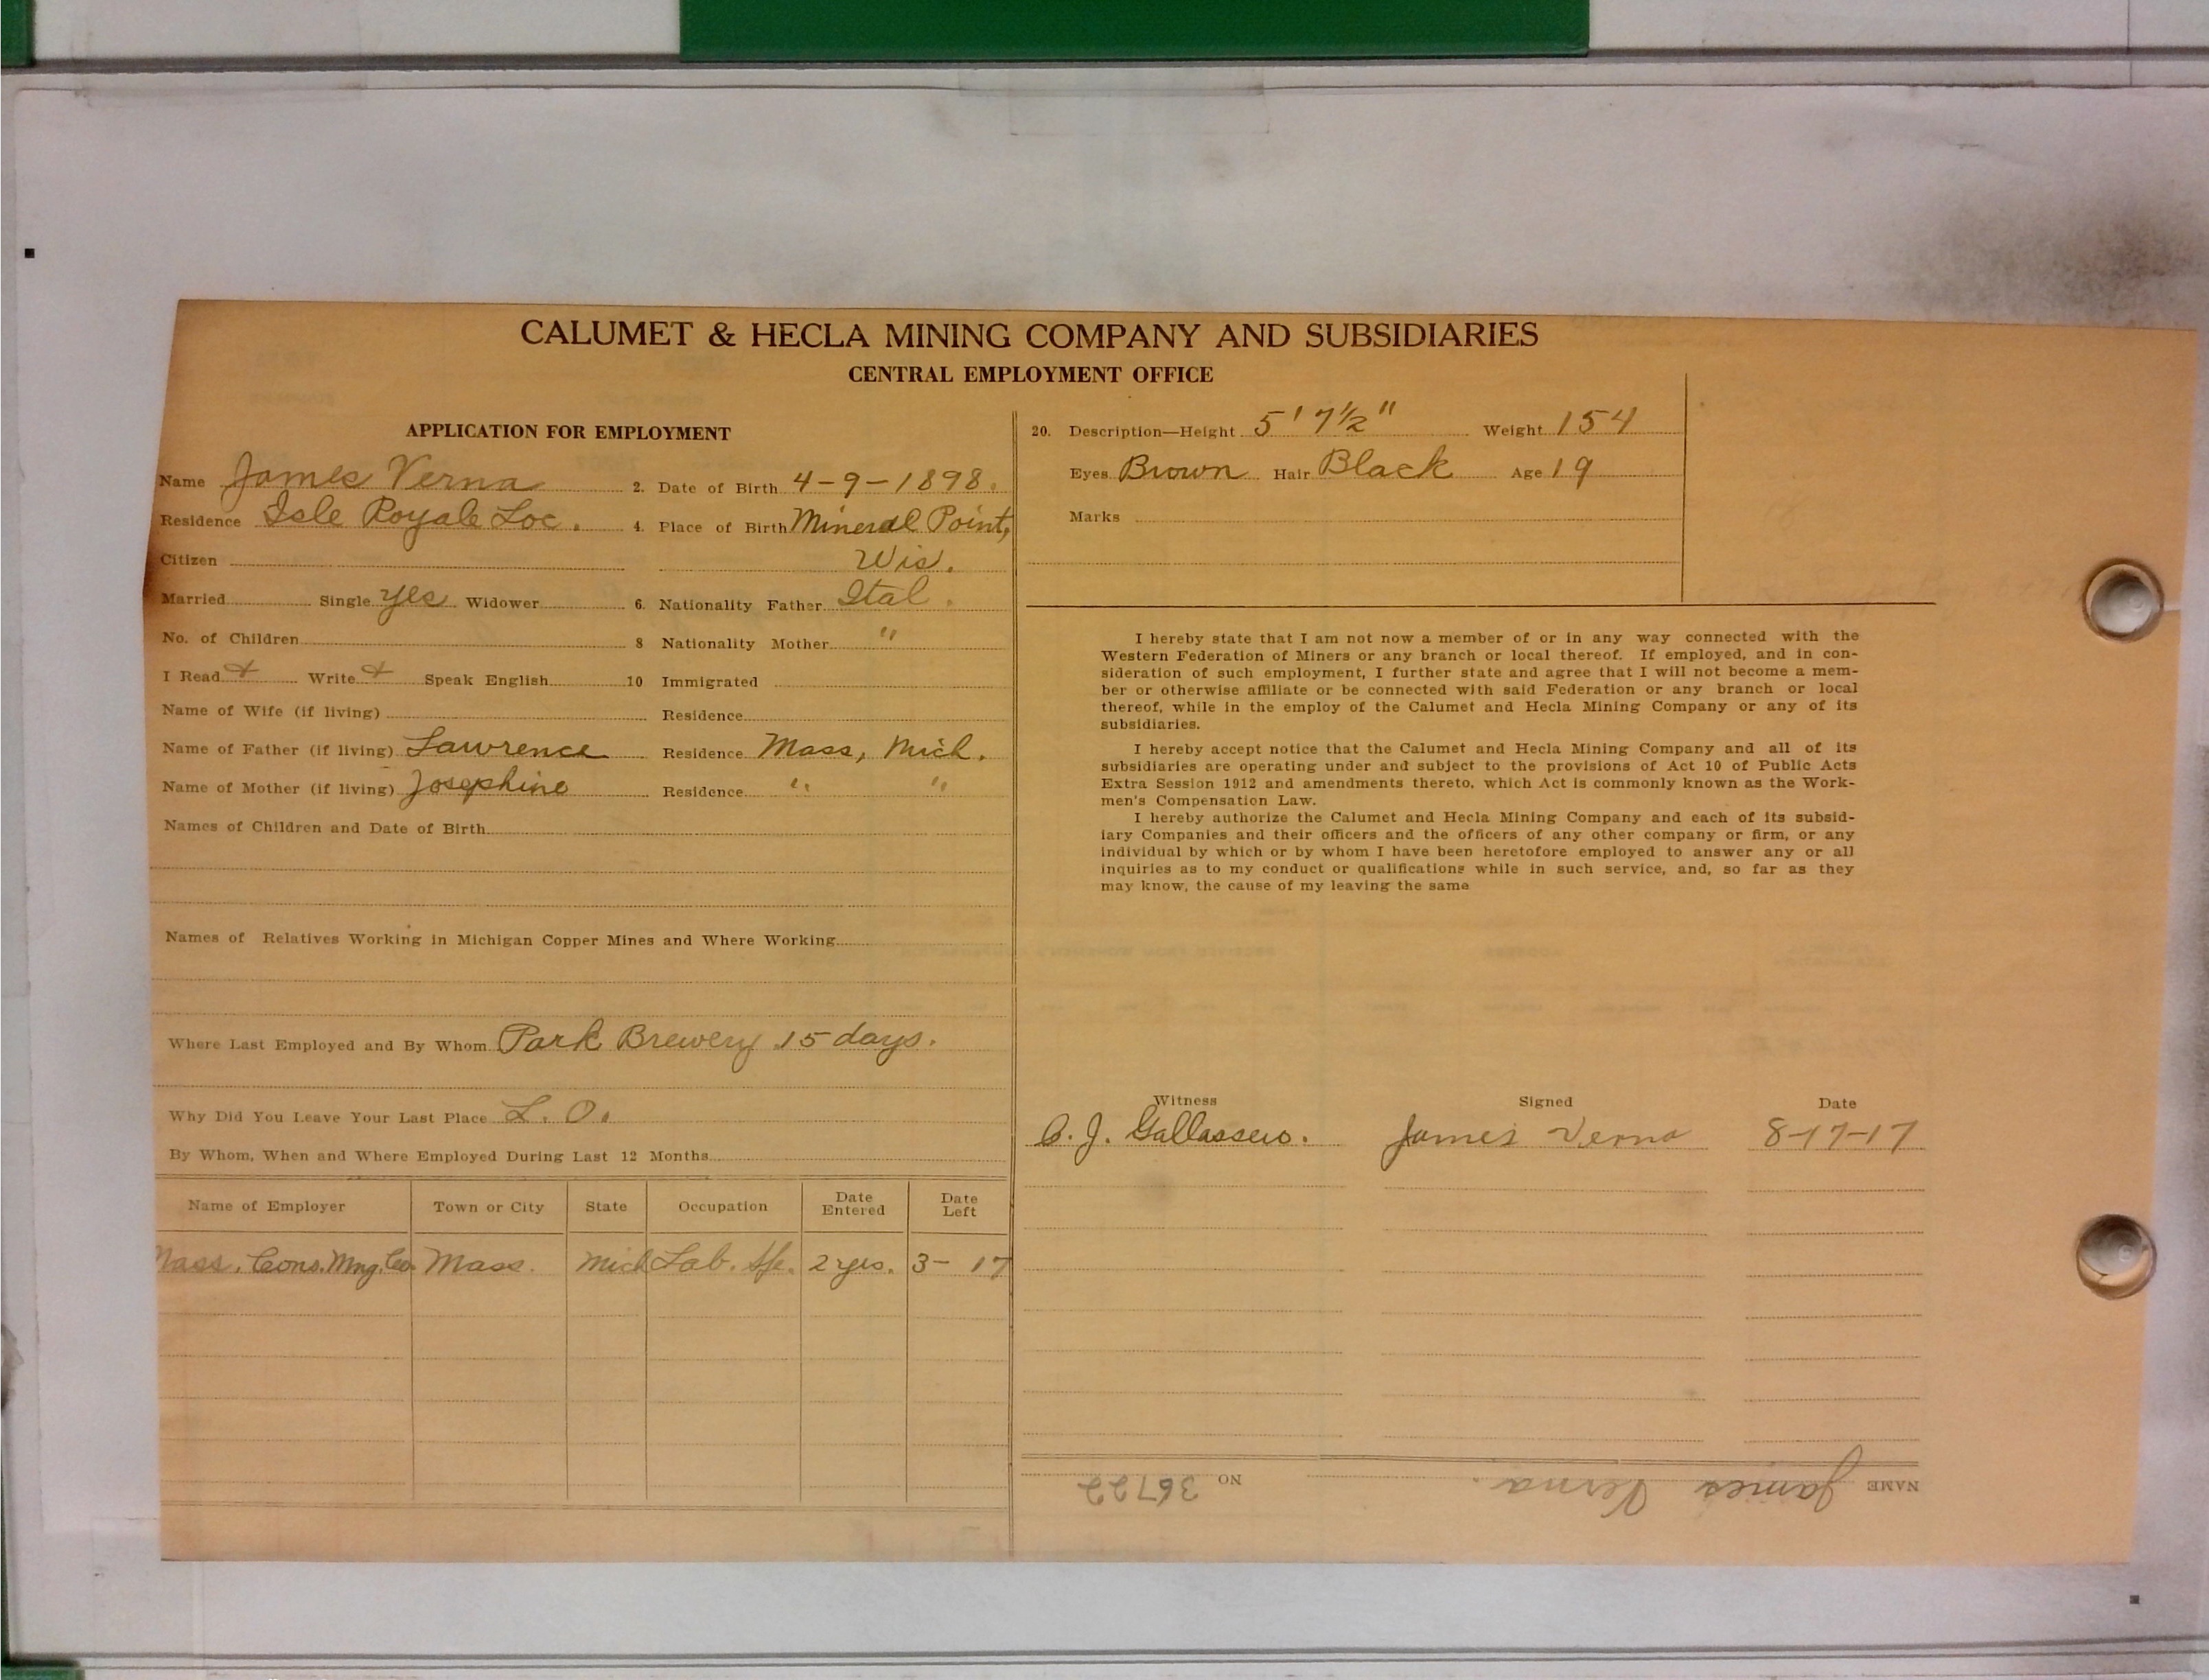 CALUMET & HECLA MINING COMPANY AND SUBSIDIARIES
CENTRAL EMPLOYMENT OFFICE
APPLICATION FOR EMPLOYMENT
Name James Verna 2. Date of Birth 4-9-1898.
Residence Isle Royale Loc. 4. Place of Birth Mineral Point,
Citizen Wis.
Married Single Yes Widower 6. Nationality Father Ital.
No. of Children 8 Nationality Mother "
I Read + Write + Speak English 10 Immigrated
Name of Wife (if living) Residence
Name of Father (if living) Lawrence Residence Mass, Mich.
Name of Mother (if living) Josephine Residence " "
Names of Children and Date of Birth
Names of Relatives Working in Michigan Copper Mines and Where Working
Where Last Employed and By Whom Park Brewery 15 days.
Why Did You Leave Your Last Place L. O.
By Whom, When and Where Employed During Last 12 Months
Name of Employer Town or City State Occupation Date Entered Date Left
Mass. Cons. Mng. Co. Mass. Mich Lab. 2 yrs. 3- 17
20. Description—Height 5' 7½" Weight 154
Eyes Brown Hair Black Age 19
Marks
I hereby state that I am not now a member of or in any way connected with the
Western Federation of Miners or any branch or local thereof. If employed, and in con-
sideration of such employment, I further state and agree that I will not become a mem-
ber or otherwise affiliate or be connected with said Federation or any branch or local
thereof, while in the employ of the Calumet and Hecla Mining Company or any of its
subsidiaries.
I hereby accept notice that the Calumet and Hecla Mining Company and all of its
subsidiaries are operating under and subject to the provisions of Act 10 of Public Acts
Extra Session 1912 and amendments thereto, which Act is commonly known as the Work-
men's Compensation Law.
I hereby authorize the Calumet and Hecla Mining Company and each of its subsid-
iary Companies and their officers and the officers of any other company or firm, or any
individual by which or by whom I have been heretofore employed to answer any or all
inquiries as to my conduct or qualifications while in such service, and, so far as they
may know, the cause of my leaving the same
Witness Signed Date
James Verna 8-17-17
NAME James Verna. NO 36722